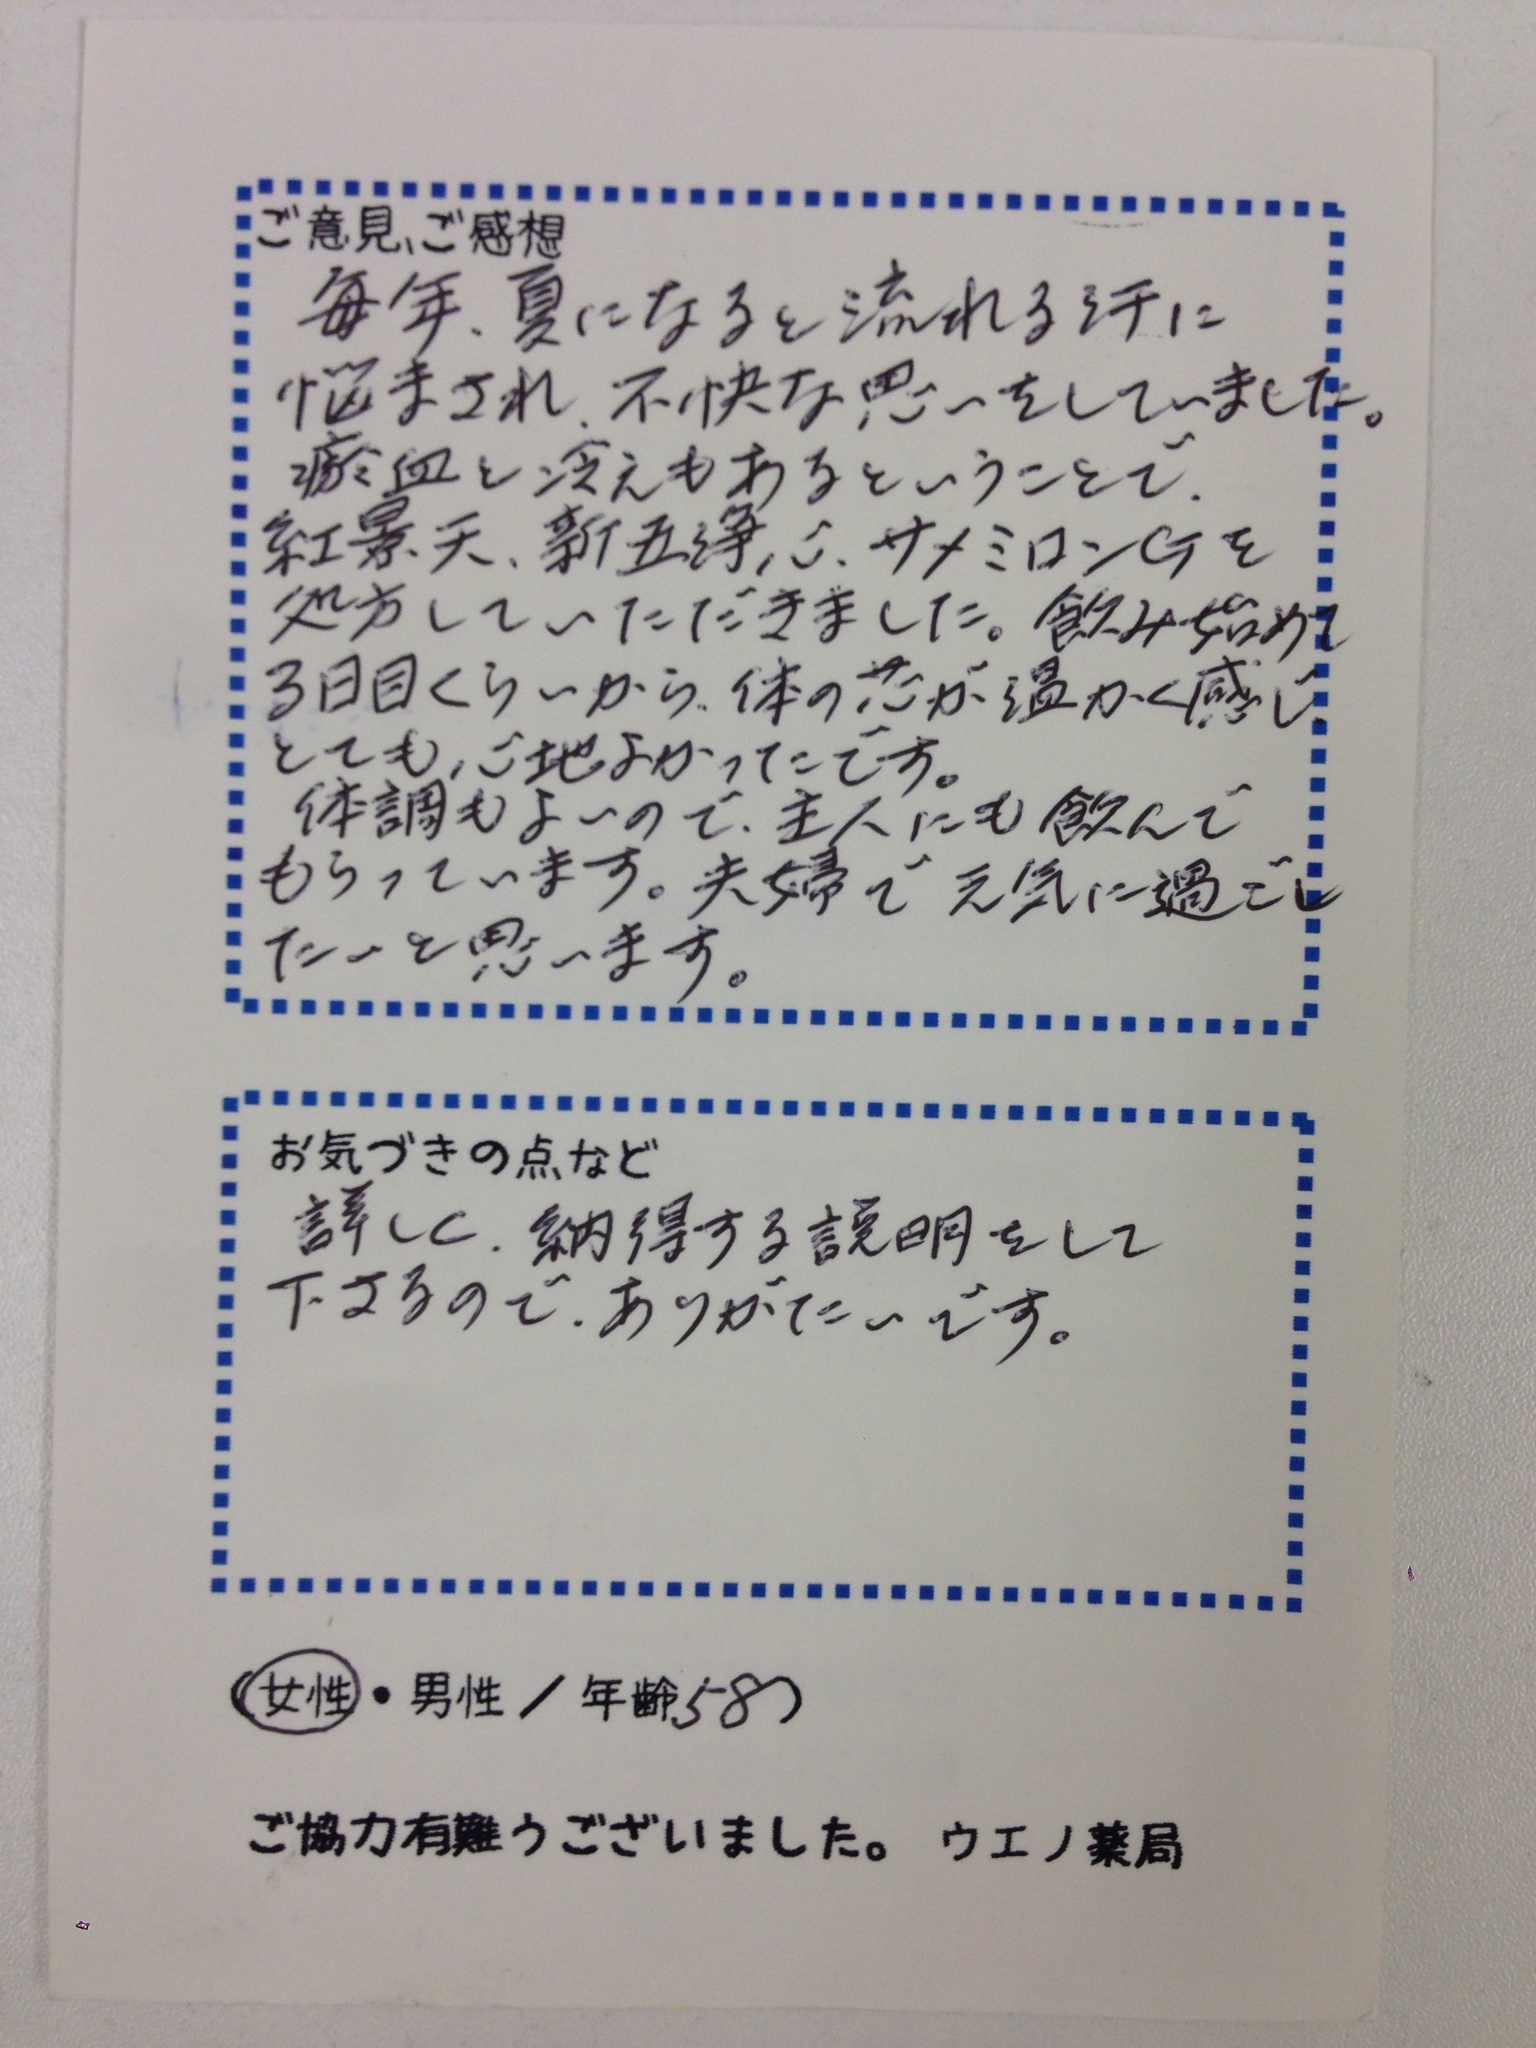 ご意見、ご感想
毎年、夏になると流れる汗に
悩まされ、不快な思いをしていました。
瘀血と冷えもあるということで、
紅景天、新五浄心、サメミロンGを
処方していただきました。飲み始めて
3日目くらいから、体の芯が温かく感じ、
とても心地よかったです。
体調もよいので、主人にも飲んで
もらっています。夫婦で元気に過ごし
たいと思います。
お気づきの点など
詳しく、納得する説明をして
下さるので、ありがたいです。
女性・男性/年齢58才
ご協力有難うございました。 ウエノ薬局